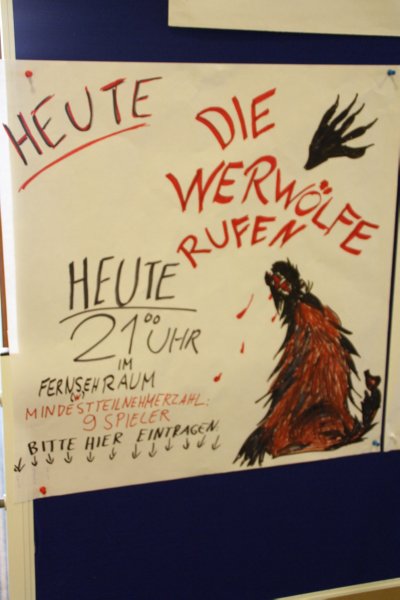 HEUTE
DIE
WERWÖLFE
RUFEN
HEUTE
21⁰⁰ UHR
IM
FERNSEHRAUM
MINDESTTEILNEHMERZAHL:
9 SPIELER
BITTE HIER EINTRAGEN